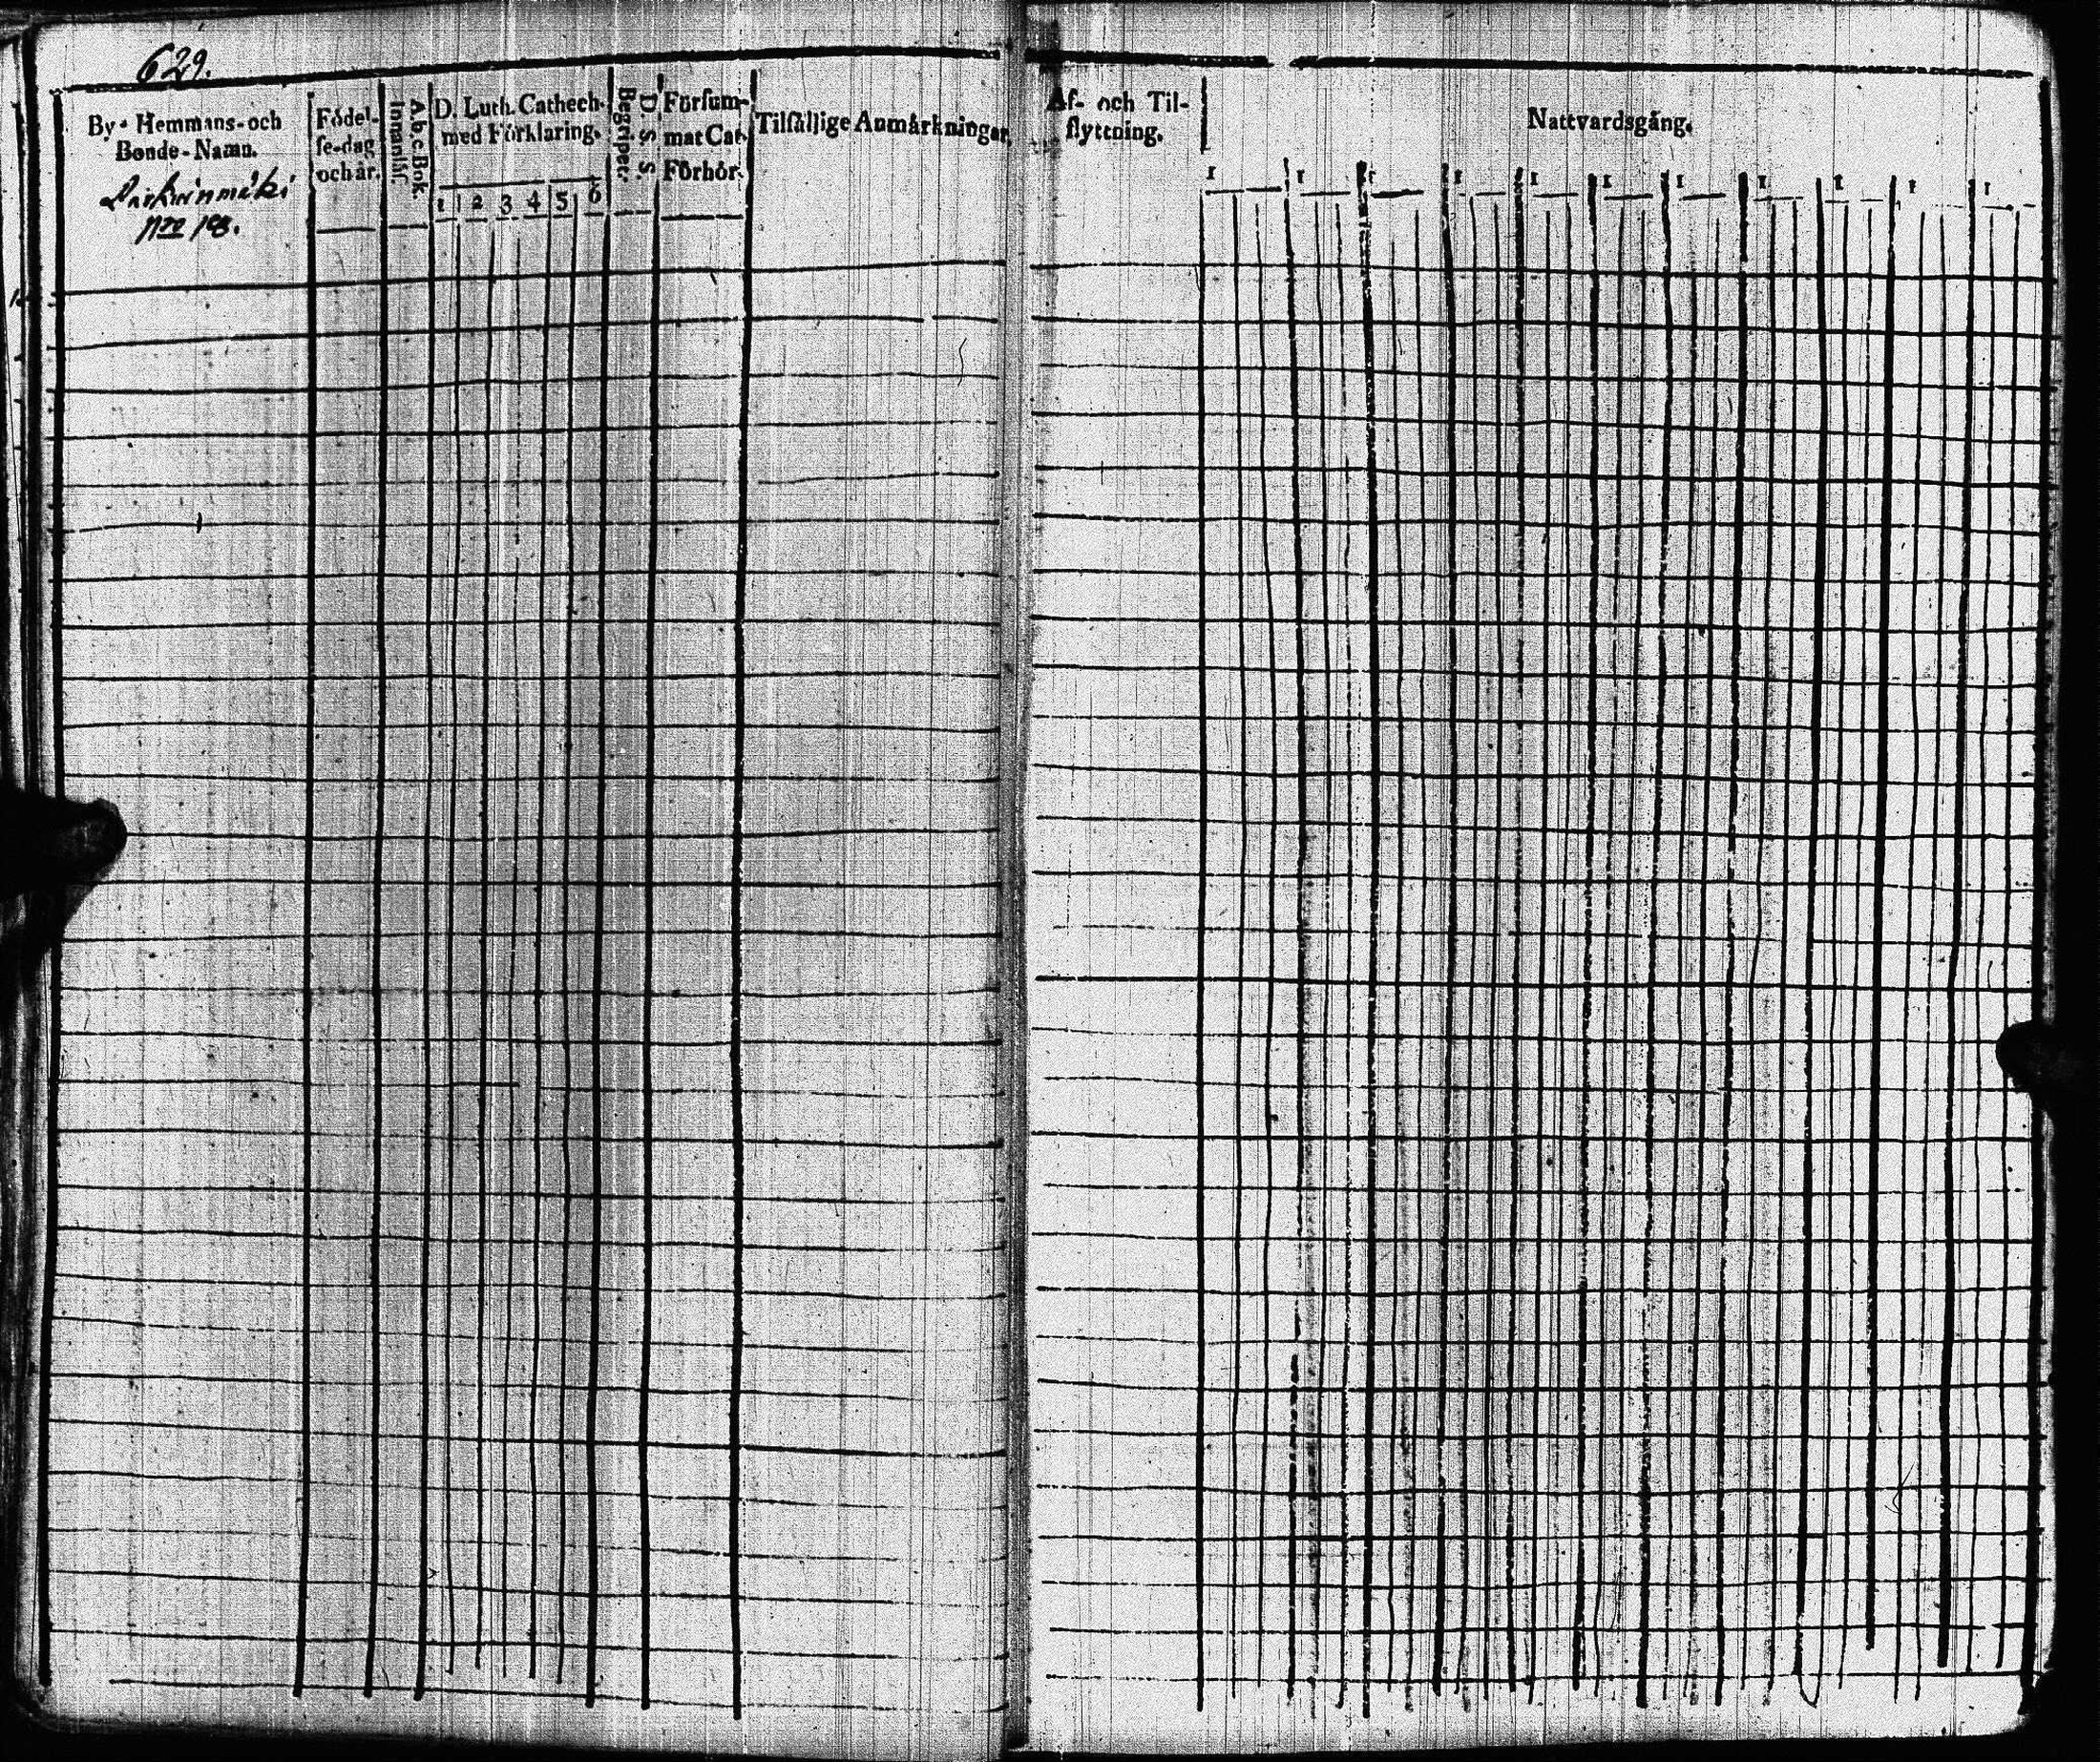 629.
By- Hemmans- och
Bonde-Namn.
N:ro 198.
Födel-
se-dag
och år.
A.b.c. Bok.
Innanläs.
D. Luth. Cathech.
med Förklaring.
1 2 3 4 5 6
D. S. S.
Begriper.
Försum-
mat Cat.
Förhör.
Tilfällige Anmärkningar.
Af- och Til-
flyttning.
Nattvardsgång.
1 1 1 1 1 1 1 1 1 1 1